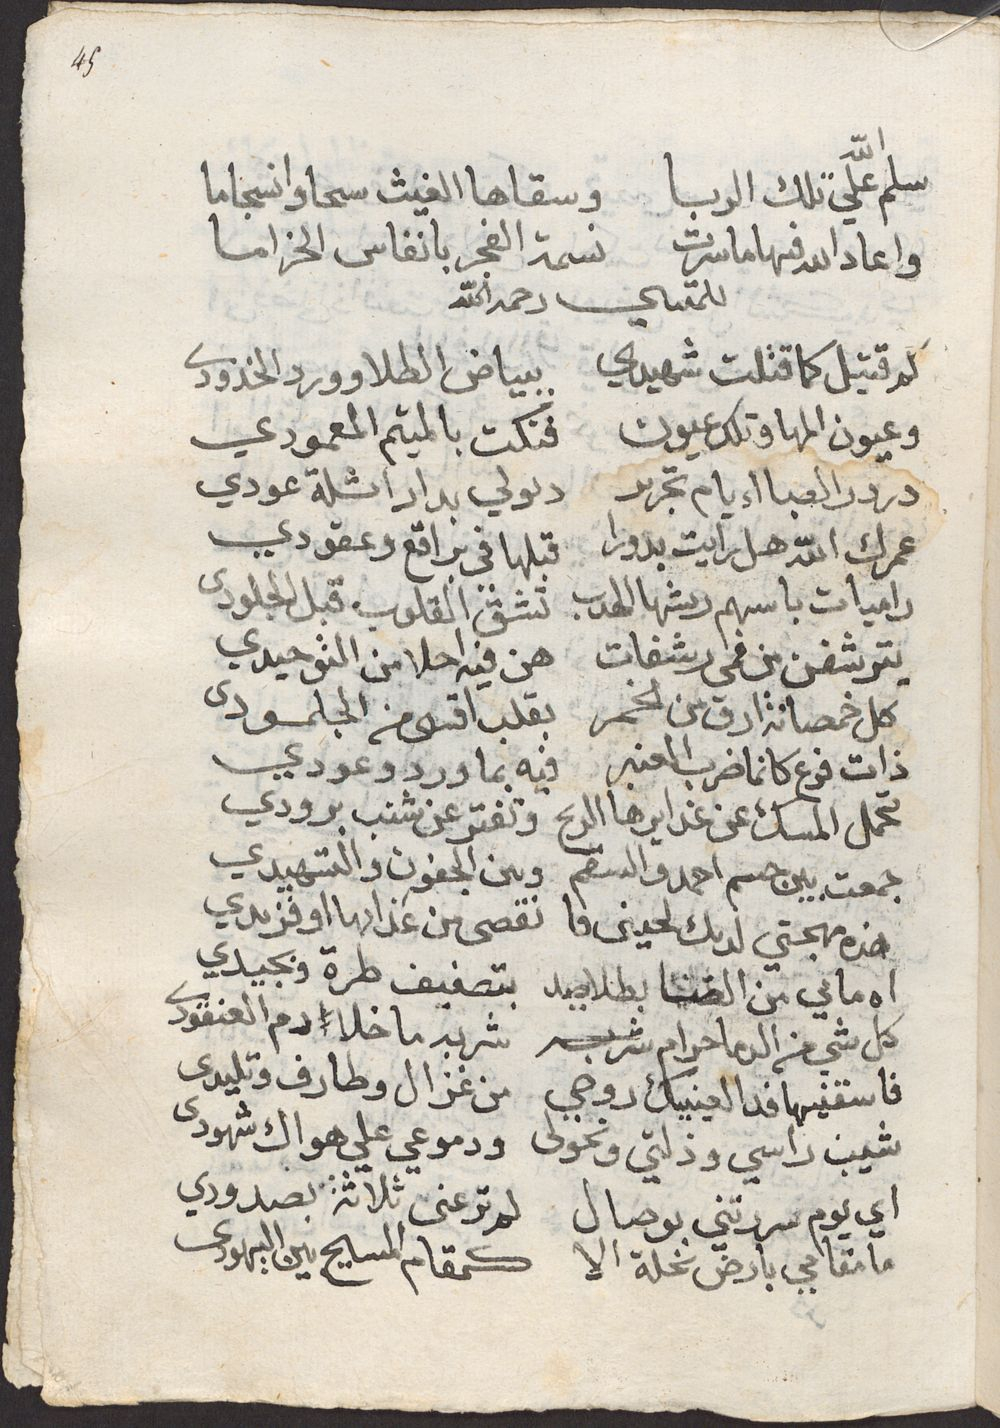 45
سلم الله علي تلك الربا وسقاها الغيث سحا وانسجاما
واعاد الله فيها ما سرت نسمة الفجر بانفاس الخزاما
للمتنبي رحمه الله
كم قتيل كما قتلت شهيدي ببياض الطلا وورد الخدودي
وعيون المها وتلك عيون فتكت بالميتم المعمودي
در در الصبا اءيام تجرير ديولي بدار اشلة عودي
عمرك الله هل رايت بدورا قبلها في براقع وعقودي
راميات باسهم ريشها الهدب تشق القلوب قبل الجلودي
يترشفن من فمي رشفات هن فيه احلا من التوحيدي
كل خمصانة ارق من الخمر بقلب اقسى من الجلمودي
ذات فرع كانما ضرب العنبر فيه بما ورد وعودي
تحمل المسك عن غدايرها الريح وتفتر عن شنب برودي
جمعت بين جسم احمد والسقم وبين الجفون والتسهيدي
هذه مهجتي لديك لحيني فا نقصي من عذابها او فزيدي
اه ماني من الضنا بطلا صيد بتصفيف طرة وبجيدي
كل شي من الدما حرام شربه ما خلا دم العنقودي
فاسقنيها فدا لعينيك روحي من غزال وطارف وتليدي
شيب راسي وذلتي ونحولى ودموعي علي هواك شهودي
اي يوم سررتني بوصال لم ترعنى ثلاثة بصدودي
ما مقامي بارض نخلة الا كمقام المسيح بين اليهودي